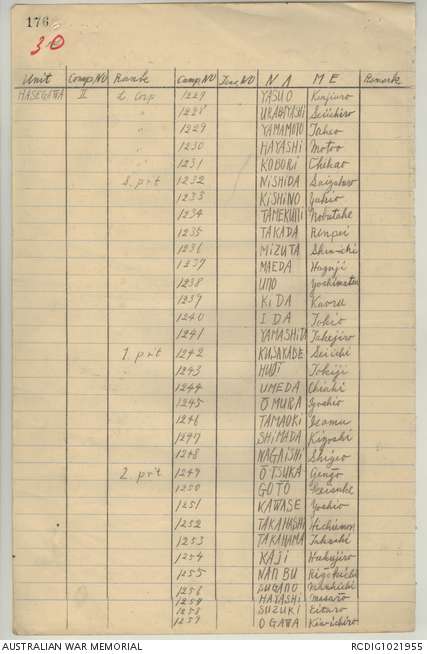 176
30
Unit Comp,No Rank Camp,No N A M E Remark
HASEGAWA II L. Corp 1227 YASUO Kinjiuro
" 1228 Seiichiro
" 1229 YAMAMOTO Takeo
" 1230 HAYASHI Motoo
" 1231 KOBORI Chikao
S. prt 1232 NISHIDA
1233 KISHINO Yukio
1234 TAMEKUNI Nobutake
1235 TAKADA Renpei
1236 MIZUTA Shin-ichi
1237 MAEDA Haguji
1238 UNO Yoshimatsu
1239 KIDA Kaoru
1240 IDA Tokio
1241 YAMASHITA Takejiro
1. prt 1242 KUSAKABE Seiichi
1243 HUJI Tokiji
1244 UMEDA Chiaki
1245 ŌMURA Yoshio
1246 TAMAOKI Isamu
1247 SHIMADA Kiyoshi
1248 NAGAISHI Shigeo
2. prt 1249 ŌTSUKA Genjo
1250 GOTO Keisuke
1251 KAWASE Yoshio
1252 TAKAHASHI
1253 TAKAHAMA Takashi
1254 KAJI Hakujiro
1255 NANBU
1256 SUGANO
HAYASHI Masaro
1258 SUZUKI Eitaro
1259 OGAWA Kin-ichiro
AUSTRALIAN WAR MEMORIAL RCDIG1021955